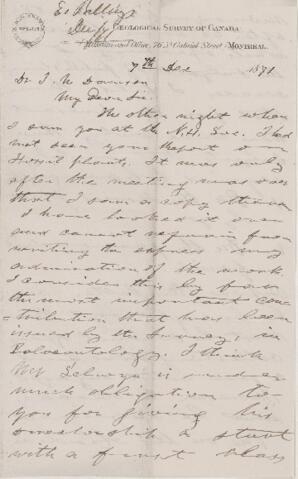 E. Billings
Geological Survey of Canada
Museum and Office, 76 St. Gabriel Street, Montreal,
7th Dec 1871
Dr J. W. Dawson
My dear Sir.
The other night when
I saw you at the N.H. Soc. I had
not seen your Report on
Fossil plants. It was only
after the meeting was over
that I saw a copy thereof
I have looked it over
and cannot refrain from
writing to express my
admiration of the work.
I consider this by far
the most important con
-tribution that has been
issued by the Survey, in
Paleontology. I think
Mr Selwyn is under
much obligation to
you for giving his
directorship a start
with a first class